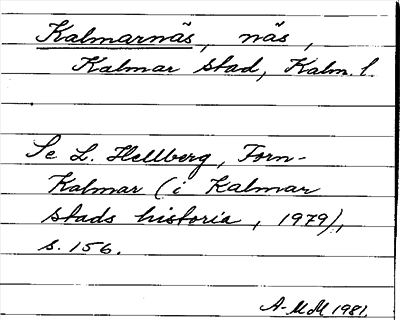 Kalmarnäs, näs,
Kalmar stad, Kalm. l.
Se L. Hellberg, Forn-
Kalmar (i Kalmar
stads historia, 1979),
s. 156.
A-MM 1981.